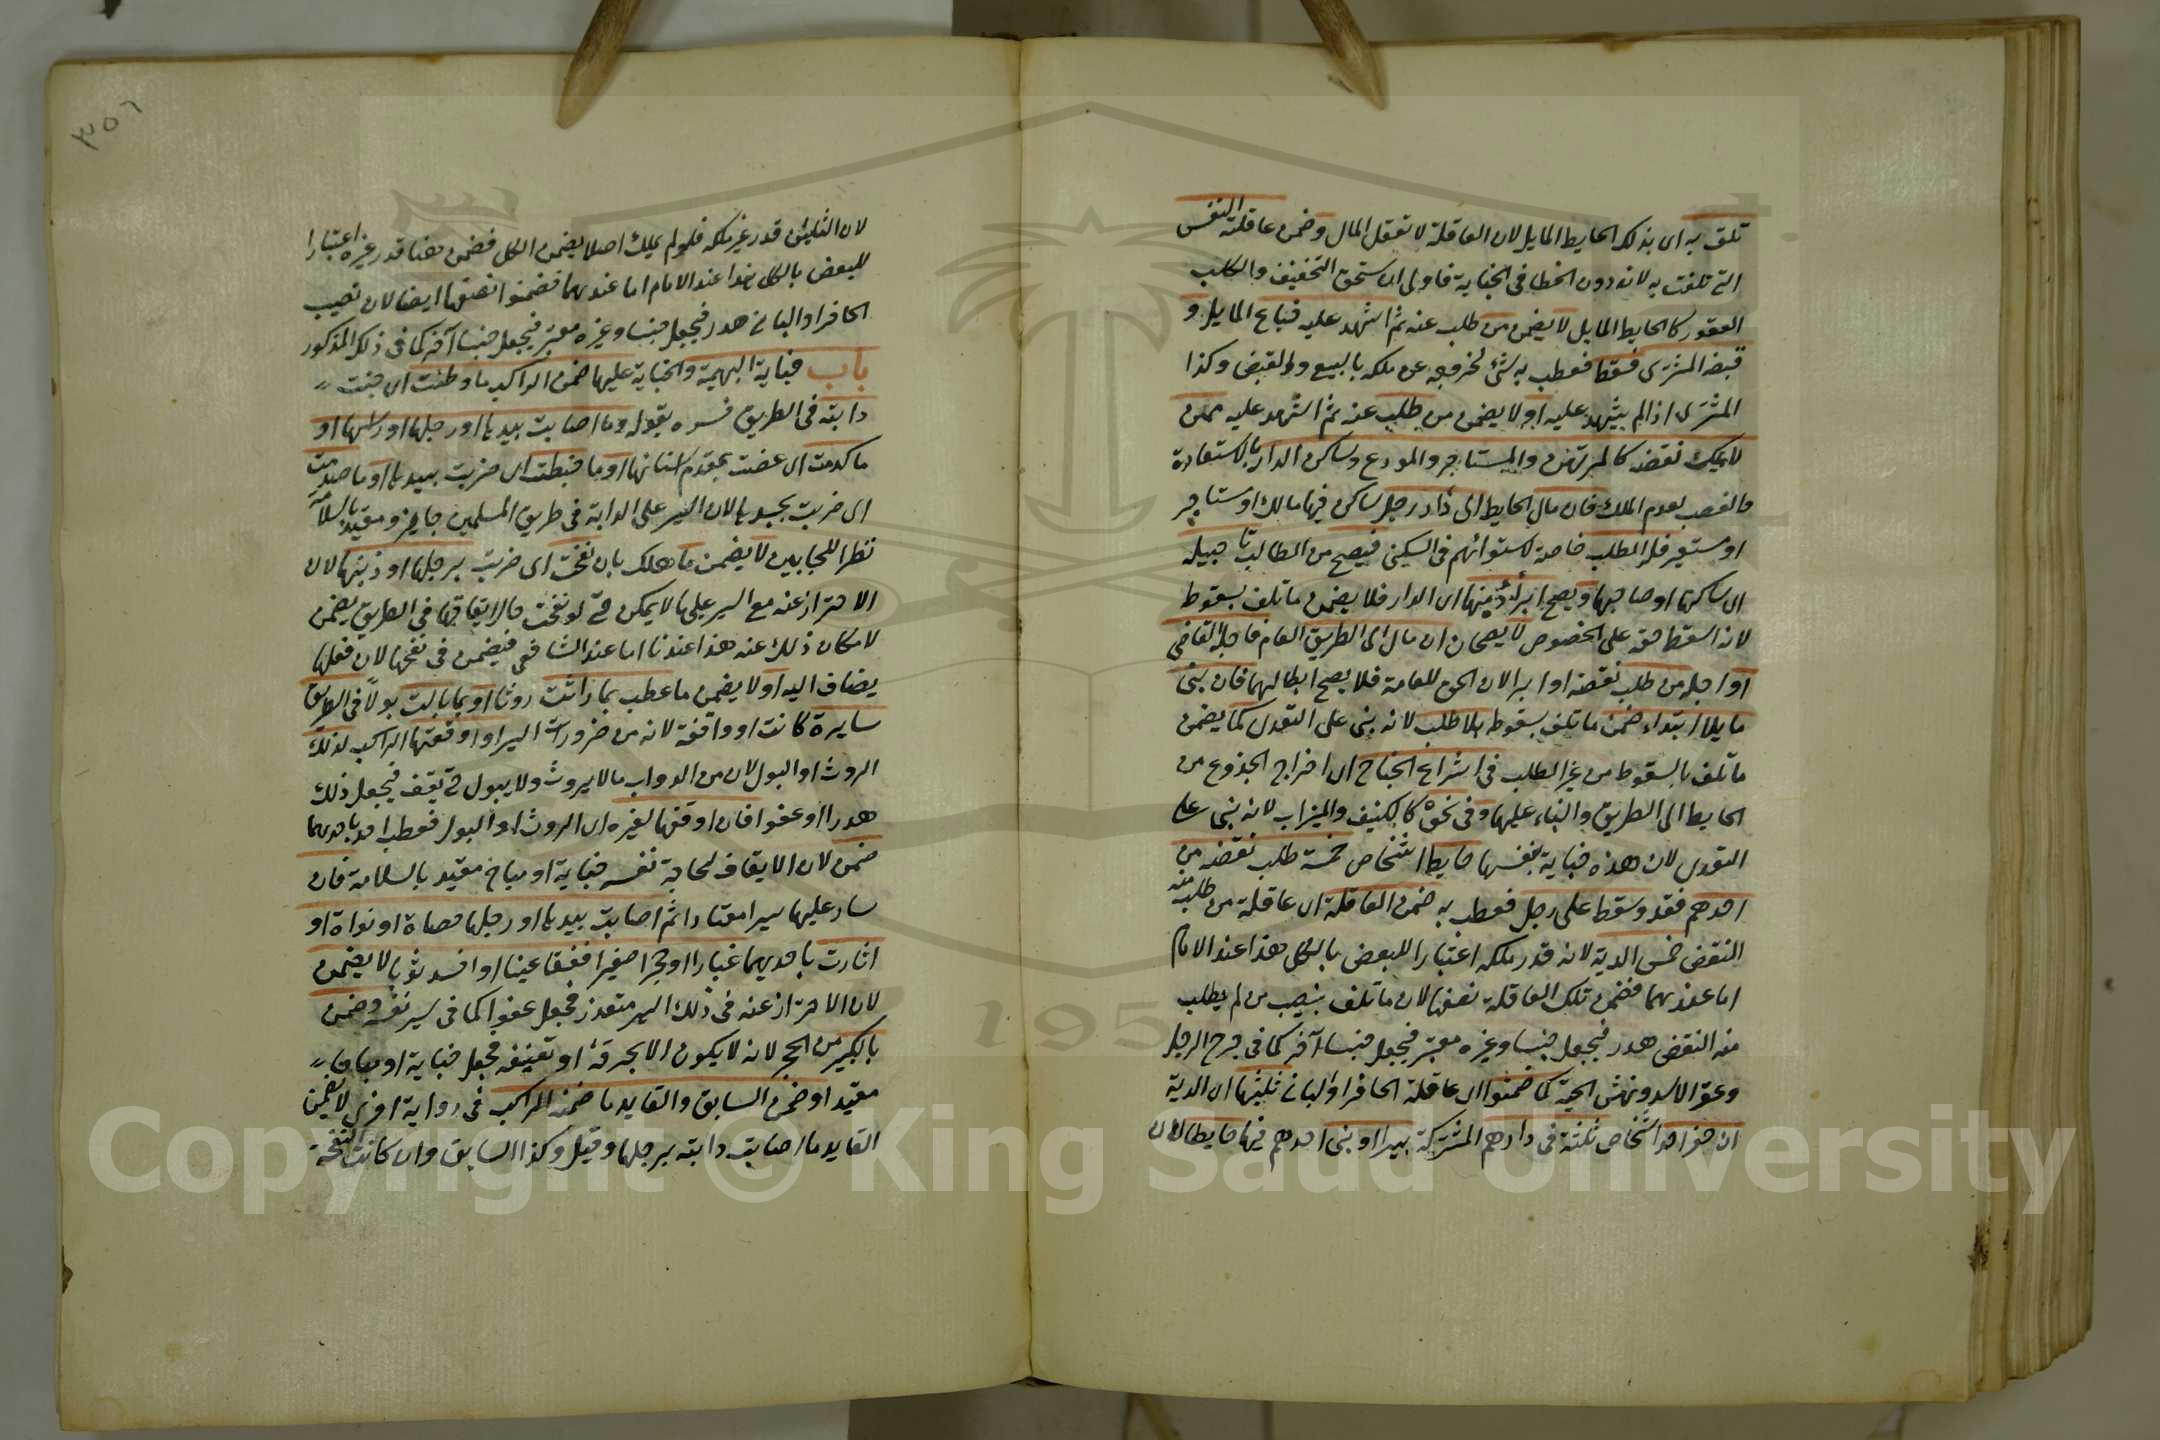 تلف به اى بذلك الحايط المايل لان العاقلة لا تعقل المال وضمن عاقلته النفس
التى تلفت به لانه دون الخطا فى الجناية فاولى ان يستحق التخفيف والكلب
العقور كالحايط المايل لا يضمن من طلب عنه ثم اشهد عليه فباع المايل و
قبضه المشترى فسقط فعطب به شئ لخروجه عن ملكه بالبيع والقبض وكذا
المشترى اذا لم يشهد عليه او لا يضمن من طلب عنه ثم اشهد عليه ممن
لا يملك نقضه كالمرتهن والمستاجر والمودع وساكن الدار بالاستعارة
والغصب لعدم الملك فان مال الحايط الى دار رجل ساكن فيها مالك او مستاجر
او مستعير فله الطلب خاصة لاستوائهم فى السكنى فيصح من المطالب تاجيله
اى ساكنها او صاحبها ويصح ابراؤه منها اى الدار فلا يضمن ما تلف بسقوط
لانه اسقط حقه على الخصوص لا يصحان ان مال الى الطريق العام فاجله القاضى
او اجله من طلب نقضه او ابرا لان الحق للعامة فلا يصح ابطالهما فان بنى
مايلا ابتداء ضمن ما تلف بسقوط بلا طلب لانه بنى على التعدى كما يضمن
ما تلف بالسقوط من غير الطلب فى اشراع الجناح اى اخراج الجذوع من
الحايط الى الطريق والبناء عليها وفى نحوه كالكنيف والميزاب لانه بنى على
التعدى لان هذه جناية بنفسها حايط اشخاص خمسة طلب نقضه من
احدهم فقد وسقط على رجل فعطب به ضمن العاقلة اى عاقلة من طلب منه
النقض خمس الدية لانه قدر ملكه اعتبارا للبعض بالكل هذا عند الامام
اما عندهما فضمن تلك العاقلة نصفها لان ما تلف بنصيب من لم يطلب
منه النقض هدر فيجعل جنسا وغيره معتبر فيجعل جنسا آخر كما فى جرح الرجل
وعقر الاسد ونهش الحية كما ضمنوا اى عاقلة الحافر او البانى ثلثيها اى الدية
ان حفر احد اشخاص ثلثة فى دارهم المشتركة بيرا او بنى احدهم فيها حايطا لان
٣٥٦
لان الثلثين قدر غير ملكه فلو لم يملك اصلا يضمن الكل فضمن هنا قدر غيره اعتبارا
للبعض بالكل هذا عند الامام اما عندهما فضمنوا نصفها ايضا لان نصيب
الحافر او البانى هدر فيجعل جنسا وغيره معتبر فيجعل جنسا آخر كما فى ذلك المذكور
باب جناية البهيمة والجناية عليها ضمن الراكب ما وطئت اى جنت
دابته فى الطريق فسره بقوله وما اصابت بيدها او رجلها او راسها او
ما كدمت اى عضت بمقدم اسنانها او ما خبطت اى ضربت بيدها او ما صدمت
اى ضربت بجسدها لان السير على الدابة فى طريق المسلمين جايز ومقيد بالسلامة
نظرا للجانبين لا يضمن ما هلك بان نفحت اى ضربت برجلها او ذنبها لان
الاحتراز عنه مع السير عليها لا يمكن حتى لو نفحت حال ايقافها فى الطريق يضمن
لامكان ذلك عنه هذا عندنا اما عند الشافعى فيضمن فى نفحها لان فعلها
يضاف اليه او لا يضمن ما عطب بما راثت روثا او بما بالت بولا فى الطريق
سايرة كانت او واقفة لانه من ضرورات السير او اوقفتها الراكب لذلك
الروث او البول لان من الدواب ما لا يروث ولا يبول حتى يقف فيجعل ذلك
هدرا او عفوا فان اوقفها لغيره اى الروث او البول فعطب احد باحدهما
ضمن لان الايقاف لحاجة نفسه جناية او مباح مقيد بالسلامة فان
سار عليها سيرا معتادا ثم اصابت بيدها او رجلها حصاة او نواة او
اثارت باحديهما غبارا او حجرا صغيرا ففقا عينا او افسد ثوبا لا يضمن
لان الاحتراز عنه فى ذلك السير متعذر فجعل عفوا كما فى سير نفسه وضمن
بالكبير من الحجر لانه لا يكون الا بخرقه او تعنيفه فجعل جناية او مباحا
مقيدا وضمن السايق والقايد ما ضمنه الراكب فى رواية اخرى لا يضمن
القايد ما اصابت دابته برجلها وقيل وكذا السايق وان كانت النفحة